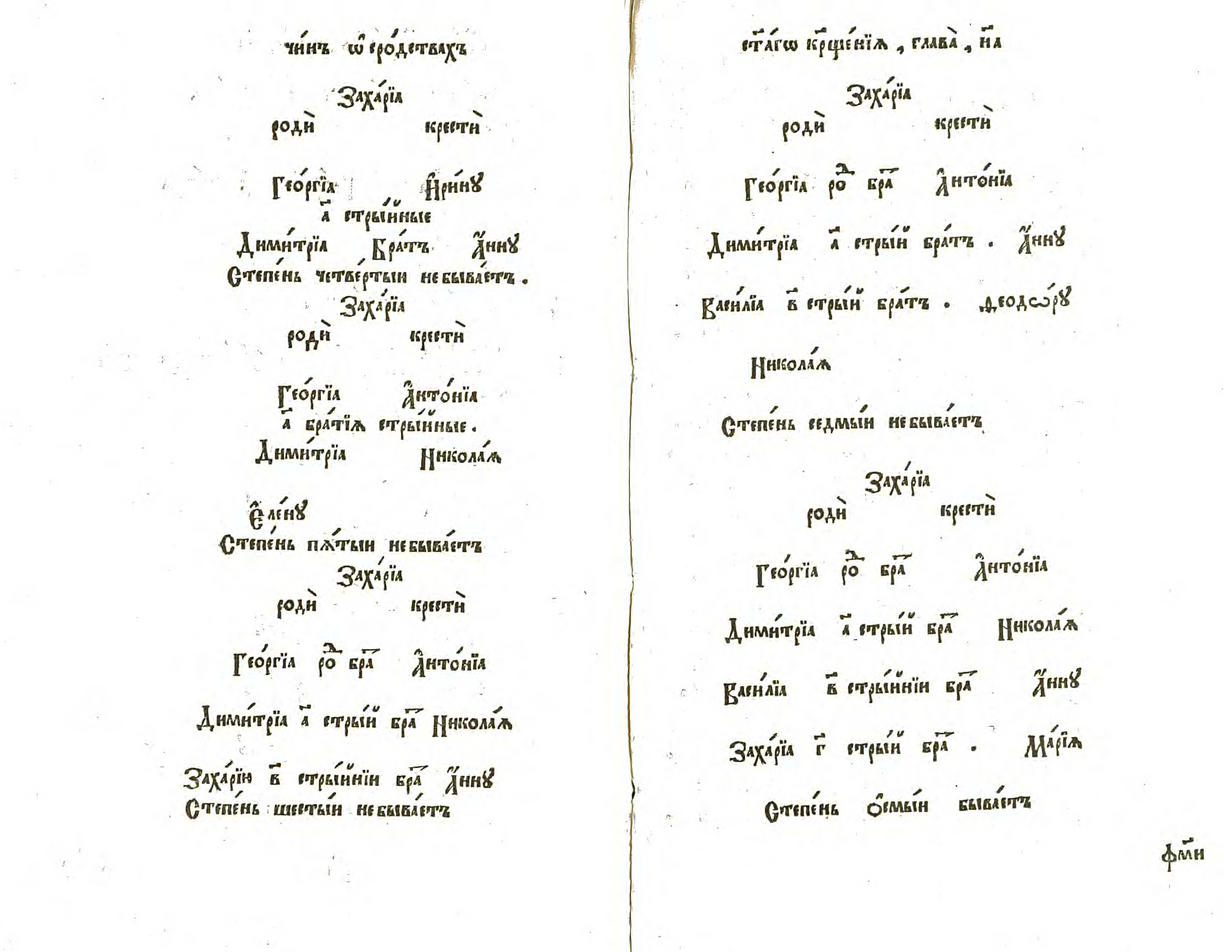 чи́нъ ѡ҆ сро́дствахъ
Заха́рїа
родѝ крестѝ
Гео́ргїа И҆ри́нꙋ
а҃ стры́йные
Дими́трїа Бра́тъ А҆́ннꙋ
Степе́нь четве́ртыи небыва́етъ .
Заха́рїа
родѝ крестѝ
Гео́ргїа А҆нто́нїа
а҃ бра́тїѧ стры́йные .
Дими́трїа Никола́ѧ
Е҆ле́нꙋ
Степе́нь пѧ́тыи небыва́етъ
Заха́рїа
родѝ крестѝ
Гео́ргїа роⷣ бра҃ А҆нто́нїа
Дими́трїа а҃ стры́й бра҃ Никола́ѧ
Заха́рїю в҃ стры́йнїи бра҃ А҆́ннꙋ
Степе́нь шесты́и небыва́етъ
ст҃а́гѡ кр҃ще́нїѧ , глава̀ , н҃а
Заха́рїа
родѝ крестѝ
Гео́ргїа роⷣ бра҃ А҆нто́нїа
Дими́трїа а҃ стры́й бра́тъ . А҆́ннꙋ
Васи́лїа в҃ стры́й бра́тъ . Ѳеодѡ́рꙋ
Никола́ѧ
Степе́нь седмы́и небыва́етъ
Заха́рїа
родѝ крестѝ
Гео́ргїа роⷣ бра҃ А҆нто́нїа
Дими́трїа а҃ стры́й бра҃ Никола́ѧ
Васи́лїа в҃ стры́йнїи бра҃ А҆́ннꙋ
Заха́рїа г҃ стры́й бра҃ . Ма́рїѧ
Степе́нь ѻ҆смы́и быва́етъ
ф҃ми